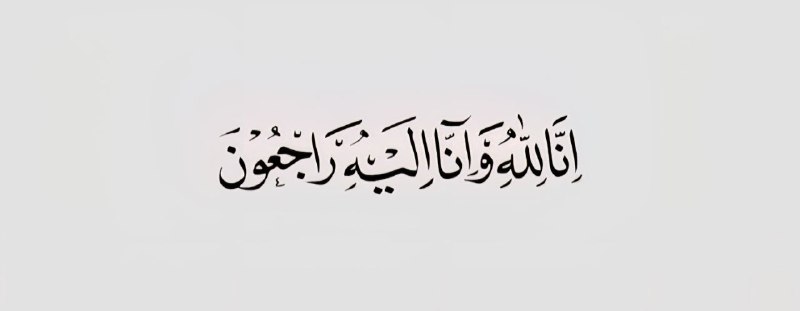 اِنَّا لِلّٰهِ وَاِنَّآ اِلَيْهِ رَاجِعُوْنَ